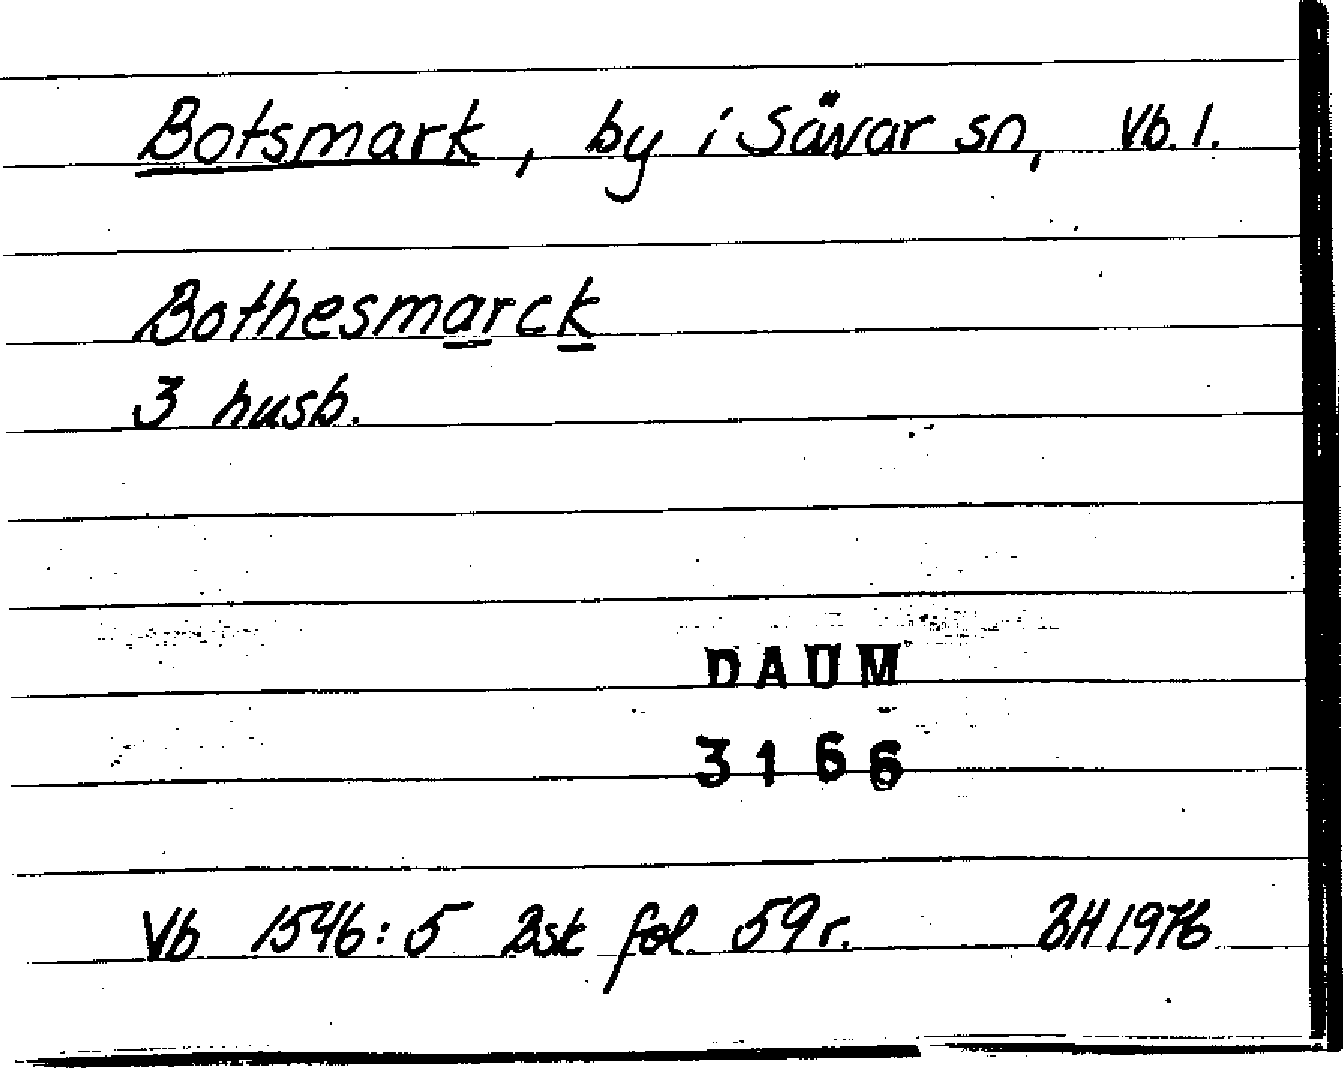 Botsmark, by i Sävar sn, Vb. l.
Bothesmarck
3 husb.
DAUM
3166
Vb 1546:5 Bsk fol. 59 r. BH 1976